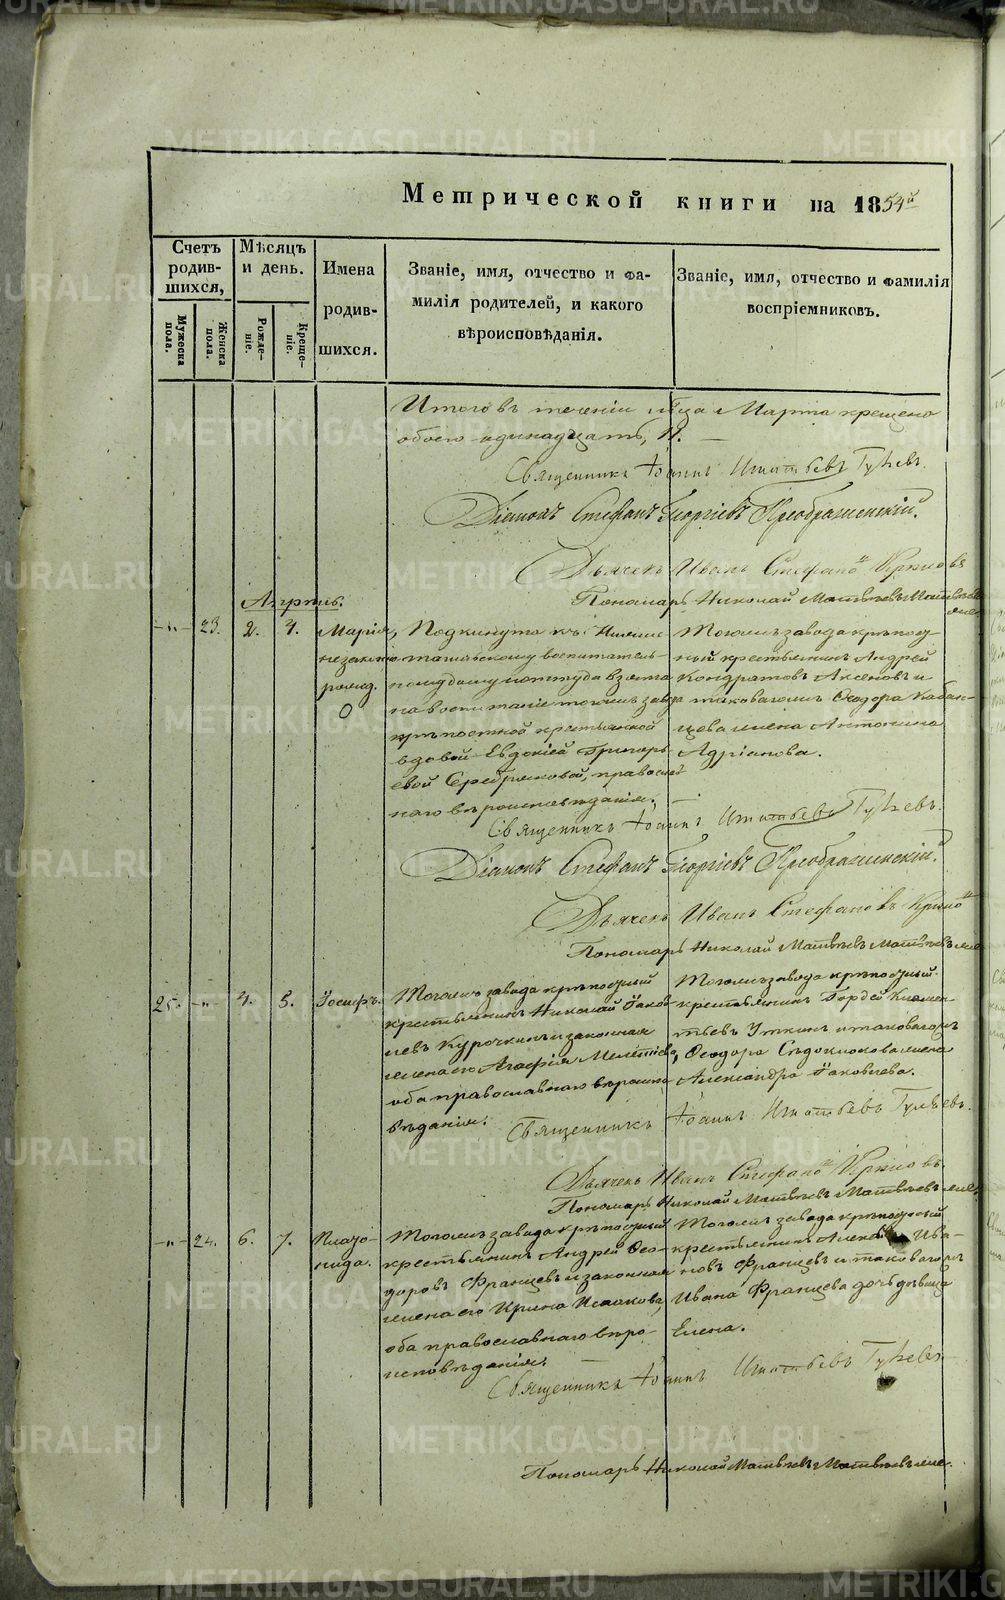 Метрической книги на 1854й
Счетъ родив-шихся,
Мѣсяцъ и день.
Имена родив-шихся.
Званіе, имя, отчество и фа-
милія родителей, и какого
вѣроисповѣданія.
Званіе, имя, отчество и фамилія
воспріемниковъ.
Мужеска пола.
Женска пола.
Рожде-ніе.
Креще-ніе.
Итого въ теченіи м̃ца Марта крещено
обоего одинадцать, 11.
Священникъ Іоаннъ Игнатьевъ
Діаконъ Стефанъ Георгіевъ Преображенскій.
Дьячекъ Иванъ Стефановъ
Пономарь Николай Матвѣевъ
Апрѣль.
-"- 23. 2. 4. Марія,
незаконно
рожд.
Подкинута къ Нижне
тагильскому воспитатель-
ному дому и оттуда взята
на воспитаніе того же завода
крѣпостной крестьянской
вдовой Евдокіей Григорь-
евой Серебряковой, православ
наго вѣроисповѣданія.
Тогожъ завода крѣпост-
ный крестьянинъ Андрей
Кондратовъ Аксеновъ и
таковагожъ Ѳеодора Кабан-
цова жена Антонина
Адріанова.
Священникъ Іоаннъ Игнатьевъ
Діаконъ Стефанъ Георгіевъ Преображенскій.
Дьячекъ Иванъ Стефановъ
Пономарь Николай Матвѣевъ
25. -"- 4. 5. Іосифъ.
Тогожъ завода крѣпостный
крестьянинъ Николай Іаков
левъ Курочкинъ и законная
жена его Агафія Мелетіева
оба православнаго вѣроиспо
вѣданія.
Тогожъ завода крѣпостный
крестьянинъ Гордей Климен-
тьевъ Уткинъ и таковагожъ
Ѳеодора жена
Александра Іаковлева.
Священникъ Іоаннъ Игнатьевъ
Дьячекъ Иванъ Стефановъ
Пономарь Николай Матвѣевъ
-"- 24. 6. 7. Ліадо-
нида.
Тогожъ завода крѣпостный
крестьянинъ Андрей Ѳео-
доровъ Францевъ и законная
жена его Ирина Исаакова
оба православнаго вѣро-
исповѣданія.
Тогожъ завода крѣпостный
крестьянинъ Алексѣй Ива-
новъ Францевъ и таковагожъ
Ивана Францева дочь дѣвица
Елена.
Священникъ Іоаннъ Игнатьевъ
Пономарь Николай Матвѣевъ
METRIKI.GASO-URAL.RU